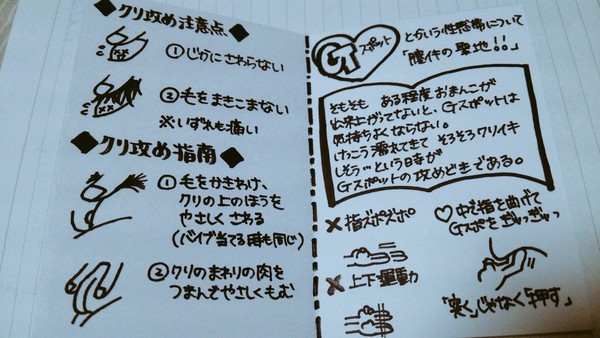 ◆クリ攻め注意点◆
①じかにさわらない
②毛をまきこまない
※いずれも痛い
◆クリ攻め指南◆
①毛をかきわけ、
クリの上のほうを
やさしくさわる
(バイブ当てる時も同じ)
②クリのまわりの肉を
つまんでやさしくもむ
Gスポット
とかいう性感帯について
「膣件の聖地!!」
そもそも ある程度おまんこが
出来上がってないと、Gスポットは
気持ちよくならない。
けっこう濡れてきて そろそろクリイキ
しそう…という日時が
Gスポットの攻めどきである。
×指ズボズボ
×上下運動
♡中で指を曲げて
Gスポをぎゅっぎゅっ
「突く」じゃなく「押す」